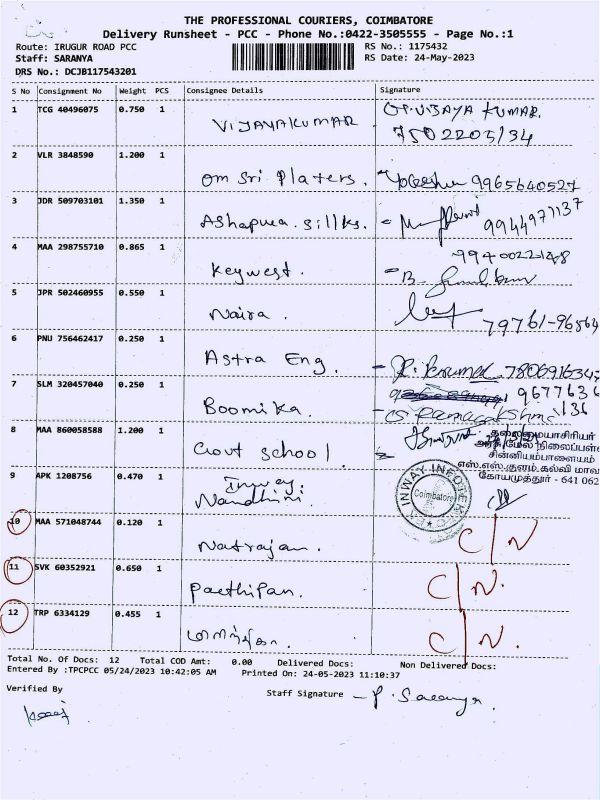 THE PROFESSIONAL COURIERS, COIMBATORE
Delivery Runsheet - PCC - Phone No.:0422-3505555 - Page No.:1
Route: IRUGUR ROAD PCC RS No.: 1175432
Staff: SARANYA RS Date: 24-May-2023
DRS No.: DCJB117543201
S No Consignment No Weight PCS Consignee Details Signature
1 TCG 40496075 0.750 1 VIJAYAKUMAR VIJAYA KUMAR.
2 VLR 3848590 1.200 1 Om Sri Platers. 9965640527
3 JDR 509703101 1.350 1 Ashapura Sillks. 9944971137
4 MAA 298755710 0.865 1 Keywest.
5 JPR 502460955 0.550 1 Naira. 79761-96564
6 PNU 756462417 0.250 1 Astra Eng. 7806916347
7 SLM 320457040 0.250 1 Boomika. 9677636
136
8 MAA 860058588 1.200 1 Govt school. தலைமையாசிரியர்
சின்னியம்பாளையம்
எஸ்.எஸ்.குளம்.கல்வி மாவ
கோயமுத்தூர் - 641 062
9 APK 1208756 0.470 1 Inway. Nandhini INWAY INFOTEK Coimbatore
10 MAA 571048744 0.120 1 Natrajan. C/N
11 SVK 60352921 0.650 1 Paethipan. C/N.
12 TRP 6334129 0.455 1 C/N.
Total No. Of Docs: 12 Total COD Amt: 0.00 Delivered Docs: Non Delivered Docs:
Entered By :TPCPCC 05/24/2023 10:42:05 AM Printed On: 24-05-2023 11:10:37
Verified By Staff Signature - P. Saranya.